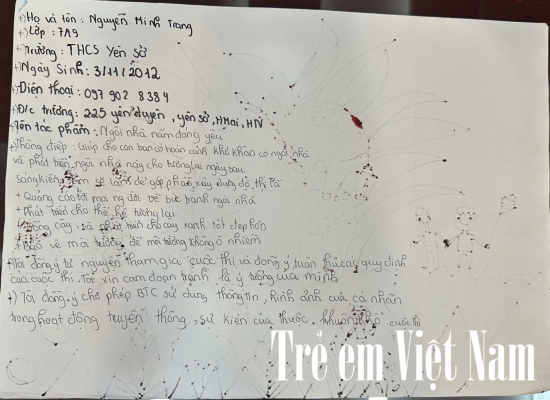 +) Họ và tên : Nguyễn Minh Trang
+) Lớp : 7A9
+) Trường : THCS Yên Sở
+) Ngày sinh : 3/11/2012
+) Điện thoại : 097 902 8384
+) Đ/c trường : 225 yên duyên, yên sở, HMai, HN
+) Tên tác phẩm : Ngôi nhà nấm đáng yêu
+) Thông điệp : Giúp cho các bạn có hoàn cảnh khó khăn có ngôi nhà
và phát triển ngôi nhà này cho tương lai ngày sau
sáng kiến em sẽ làm để góp phần xây dựng đô thị là
+ Quảng cáo tới mọi người về bức tranh ngôi nhà
+ phát triển cho thế hệ tương lai
+ trồng cây, và phát triển cho cây xanh tốt đẹp hơn
+ bảo vệ môi trường để môi trường không ô nhiễm
+) Tôi đồng ý tự nguyện tham gia cuộc thi và đồng ý tuân thủ các quy định
của cuộc thi. Tôi xin cam đoan tranh là ý tưởng của mình
+) Tôi đồng ý cho phép BTC sử dụng thông tin, hình ảnh của cá nhân
trong hoạt động truyền thông, sự kiện của thuộc, khuôn khổ cuộc thi
Trẻ em Việt Nam